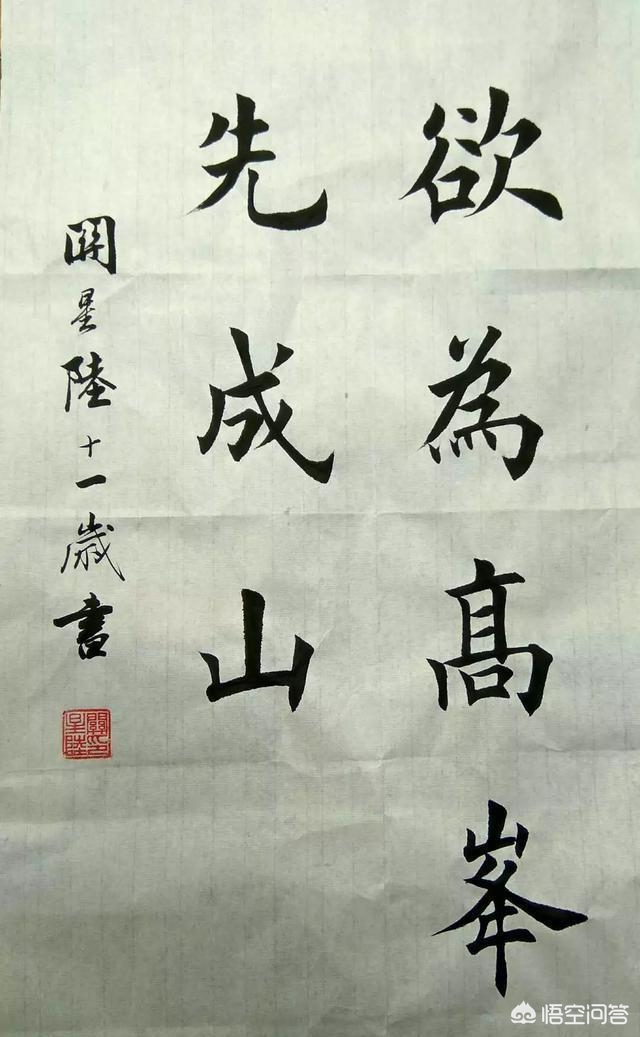 欲為高峯
先成山
關星陸十一歲書
關星陸印
悟空问答